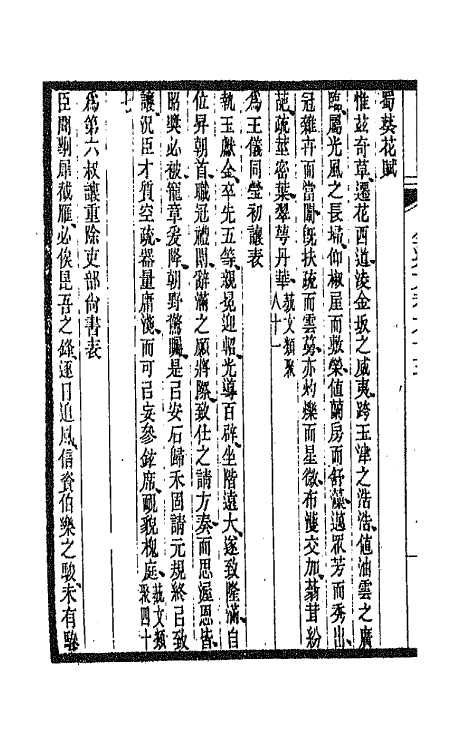 蜀葵花賦
惟茲奇草遷花西道淩金坂之威夷跨玉津之浩浩值油雲之廣
臨屬光風之長埽仰椒屋而敷榮值蘭房而舒藻邁眾芳而秀出
冠雜卉而當闈旣扶疏而雲蔓亦灼爍而星微布濩交加蓊茸紛
葩疏莖密葉翠萼丹華藝文類聚八十一
爲王儀同瑩初讓表
執玉獻金卒先五等親冕迎韶光導百辟坐階遠大遂致隆滿自
位昇朝首職冠禮闈辭滿之願將際致仕之請方奏而思渥思皆
昭獎必被寵章爰降朝野驚矚是㠯安石歸禾固請元規終㠯致
讓況臣才質空疏器量庸淺而可㠯妄參鉉席覥貌槐庭藝文類聚四十
七
爲第六叔讓重除吏部尙書表
臣聞剸犀截雁必俟昆吾之鋒逐日追風信資伯樂之駿未有駑